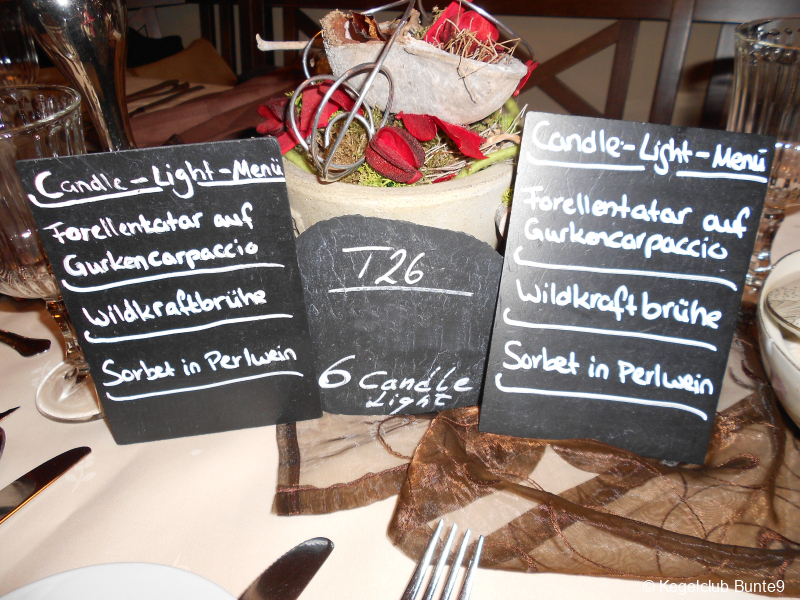 Candle-Light-Menü
Forellentatar auf
Gurkencarpaccio
Wildkraftbrühe
Sorbet in Perlwein
T26
6 Candle
Light
Candle-Light-Menü
Forellentatar auf
Gurkencarpaccio
Wildkraftbrühe
Sorbet in Perlwein
© Kegelclub Bunte9